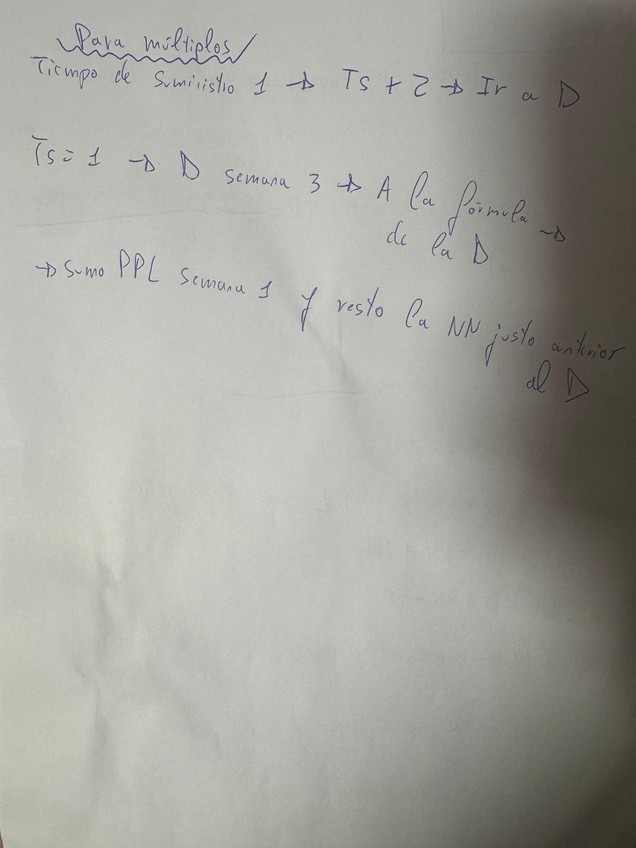 Para múltiplos
Tiempo de Suministro 1 → Ts + 2 → Ir a D
Ts = 1 → D semana 3 → A la fórmula →
de la D
→ Sumo PPL semana 1 y resto la NN justo anterior
al D